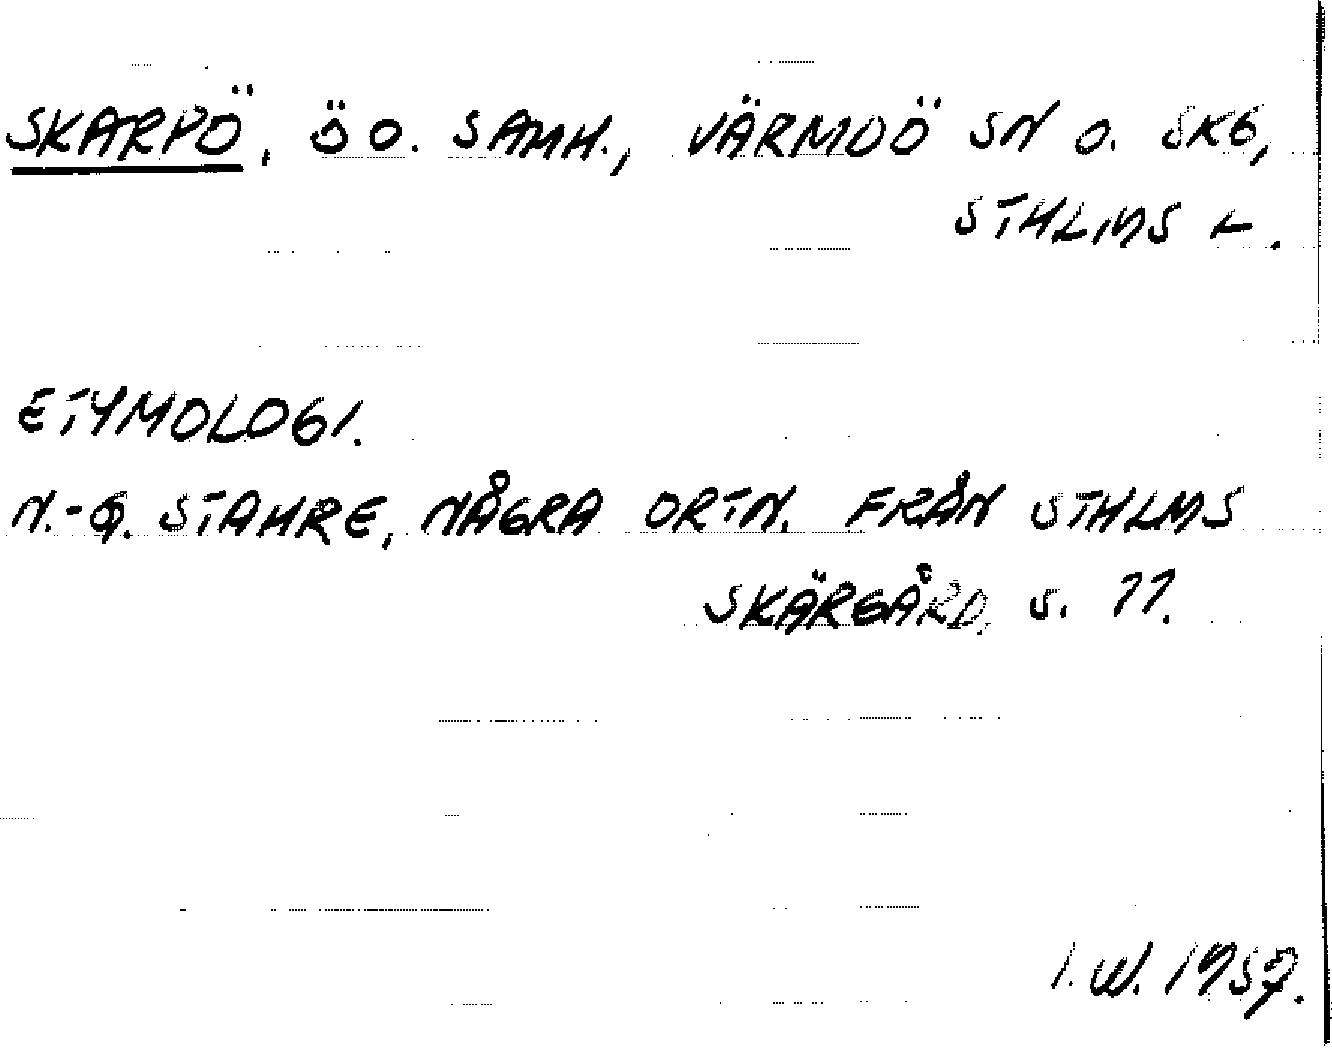 SKARPÖ, Ö O. SAMH., VÄRMDÖ SN O. SKG,
STHLMS L.
ETYMOLOGI.
N.-G. STAHRE, NÅGRA ORTN. FRÅN STHLMS
SKÄRGÅRD, S. 77.
I.W. 1957.